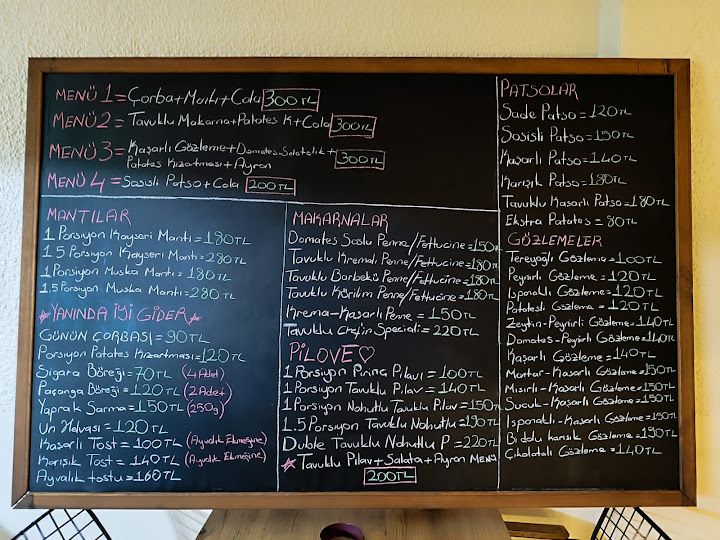 MENÜ 1 = Çorba + Mantı + Cola 300 TL
MENÜ 2 = Tavuklu Makarna + Patates K + Cola 300 TL
MENÜ 3 = Kaşarlı Gözleme + Domates-Salatalık +
Patates Kızartması + Ayran 300 TL
MENÜ 4 = Sosisli Patso + Cola 200 TL
MANTILAR
1 Porsiyon Kayseri Mantı = 180 TL
1.5 Porsiyon Kayseri Mantı = 280 TL
1 Porsiyon Muska Mantı = 180 TL
1.5 Porsiyon Muska Mantı = 280 TL
YANINDA İYİ GİDER
GÜNÜN ÇORBASI = 90 TL
Porsiyon Patates Kızartması = 120 TL
Sigara Böreği = 70 TL (4 Adet)
Paçanga Böreği = 120 TL (2 Adet)
Yaprak Sarma = 150 TL (250g)
Un Helvası = 120 TL
Kaşarlı Tost = 100 TL (Ayvalık Ekmeğine)
Karışık Tost = 140 TL (Ayvalık Ekmeğine)
Ayvalık tostu = 160 TL
MAKARNALAR
Domates Soslu Penne/Fettucine = 150 TL
Tavuklu Kremalı Penne/Fettucine = 180 TL
Tavuklu Barbekü Penne/Fettucine = 180 TL
Tavuklu Körilim Penne/Fettucine = 180 TL
Krema-Kaşarlı Penne = 150 TL
Tavuklu Chef'in Speciali = 220 TL
PİLOVE♡
1 Porsiyon Pirinç Pilavı = 100 TL
1 Porsiyon Tavuklu Pilav = 140 TL
1 Porsiyon Nohutlu Tavuklu Pilav = 150 TL
1.5 Porsiyon Tavuklu Nohutlu = 190 TL
Duble Tavuklu Nohutlu P = 220 TL
Tavuklu Pilav + Salata + Ayran MENÜ
200 TL
PATSOLAR
Sade Patso = 120 TL
Sosisli Patso = 150 TL
Kaşarlı Patso = 140 TL
Karışık Patso = 180 TL
Tavuklu Kaşarlı Patso = 180 TL
Ekstra Patates = 80 TL
GÖZLEMELER
Tereyağlı Gözleme = 100 TL
Peynirli Gözleme = 120 TL
Ispanaklı Gözleme = 120 TL
Patatesli Gözleme = 120 TL
Zeytin-Peynirli Gözleme = 140 TL
Domates-Peynirli Gözleme = 140 TL
Kaşarlı Gözleme = 140 TL
Mantar-Kaşarlı Gözleme = 150 TL
Mısırlı-Kaşarlı Gözleme = 150 TL
Sucuk-Kaşarlı Gözleme = 150 TL
Ispanaklı-Kaşarlı Gözleme = 150 TL
Bi dolu karışık Gözleme = 190 TL
Çikolatalı Gözleme = 140 TL